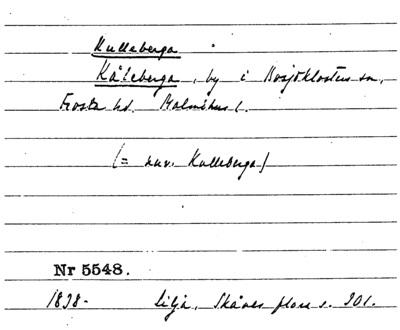 Kulleberga
Kåleberga, by i Bosjöklosters sn,
Frosta hd. Malmöhus l.
(= nuv. Kulleberga)
Nr 5548.
1838- Lilja, Skånes flora s. 301.